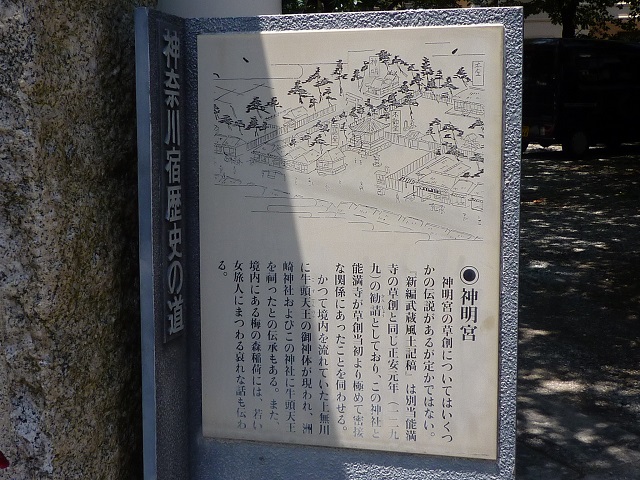 神奈川宿歴史の道
神明宮
神明宮の草創についてはいくつ
かの伝説があるが定かではない。
『新編武蔵風土記稿』は別当能満
寺の草創と同じ正安元年(一二九
九)の勧請としており、この神社と
能満寺が草創当初より極めて密接
な関係にあったことを伺わせる。
かつて境内を流れていた上無川
に牛頭天王の御神体が現われ、洲
崎神社およびこの神社に牛頭天王
を祠ったとの伝承もある。また、
境内にある梅の森稲荷には、若い
女旅人にまつわる哀れな話も伝わ
る。